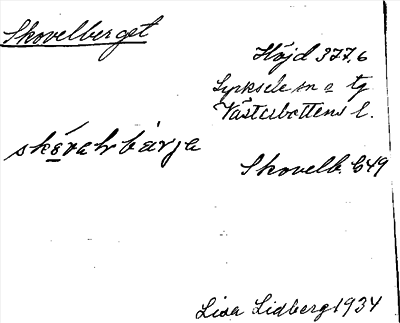 Skovelberget
Höjd 377,6
Lycksele sn o tg
Västerbottens l.
skóvahr bàrja
Skovelb. 649
Lisa Lidberg 1934